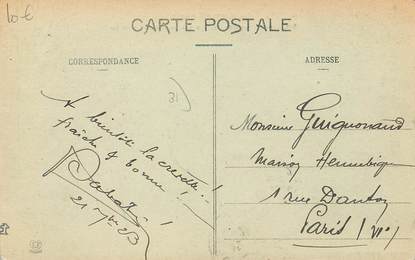 10 €
CARTE POSTALE
CORRESPONDANCE
ADRESSE
31
A bientôt la crevette !
fraîche & bonne !
21 7bre 23
Monsieur Guignouand
Maison Hennebique
1 rue Danton
Paris VI